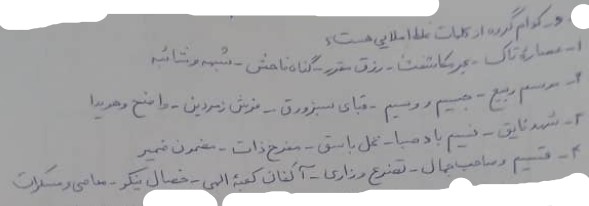 ۹- کدام گروه از کلمات غلط املایی هست؟
۱- عصارهٔ تاک - بحر مکاشفت - رزق مقدر - گناه فاحش - شبهه و شائبه
۲- موسم ربیع - جسیم و وسیم - قبای سبز ورق - فرش زمردین - واضح و هویدا
۳- شهد فایق - نسیم باد صبا - نخل باسق - مفرح ذات - مضمون ضمیر
۴- قسیم و صاحب جمال - تضرع و زاری - آکفان کعبهٔ الهی - خصال نیکو - معاصی و مسکرات